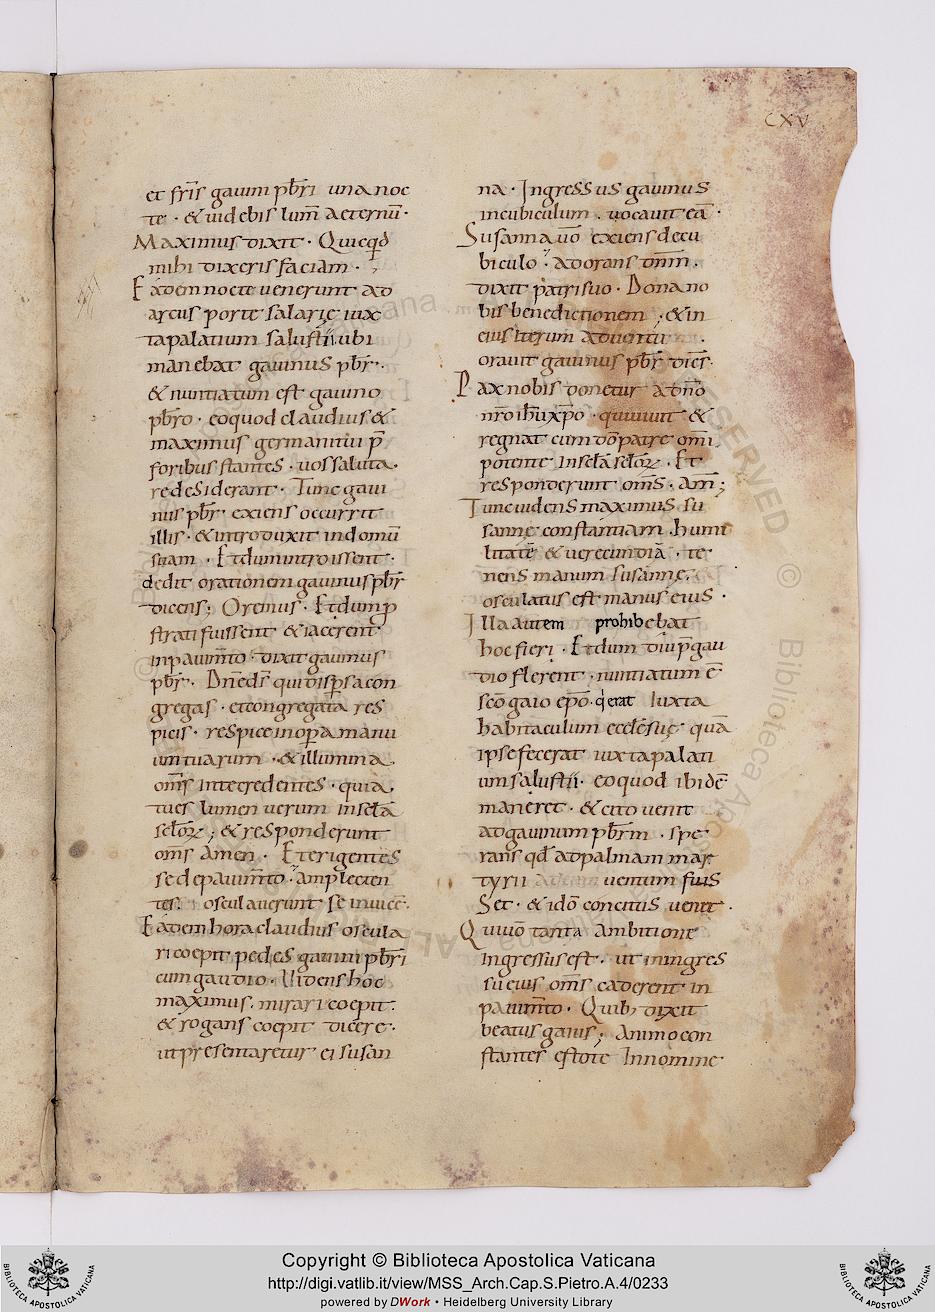 CXV
et fr̄is gauini pb̄ri una noc
te · & uidebis lum̄ aeternū·
Maximus dixit · Quicq̄d
mihi dixeris faciam ·
Eadem nocte uenerunt ad
arcus porte salarię iux
ta palatium salustii ubi
manebat gauinus pb̄r·
& nuntiatum est gauino
pb̄ro · eo quod claudius &
maximus germani tui p̄
foribus stantes · uos saluta·
re desiderant · Tunc gaui
nus pb̄r · exiens occurrit
illis · & introduxit in domū
suam · Et dum introissent ·
dedit orationem gauinus pb̄r
dicens; Oremus · Et dum ꝓ
strati fuissent & iacerent
in pauim̄to dixit gauinus
pb̄r · Dn̄e d̄s qui dispsa con
gregas · et congregata res
picis · respice in opa manu
um tuarum · & illumina
om̄s in te credentes · quia
tu es lumen uerum in scl̄a
scl̄oꝝ ; & responderunt
om̄s amen · Et erigentes
se de pauim̄to · amplecten
tes osculauerunt se inuicē·
Eadem hora claudius oscula
ri coepit pedes gauini pb̄ri
cum gaudio · Uidens hoc
maximus mirari coepit
& rogans coepit dicere·
ut presentaretur ei susan
na · Ingressus gauinus
in cubiculum · uocauit eā ·
Susanna uō exiens de cu
biculo adorans dn̄m ·
dixit patri suo · Dona no
bis benedictionem ; & in
eius iterum aduentu
orauit gauinus pb̄r dicēs
Pax nobis donetur a dn̄o
nr̄o ihu xp̄o · qui uiuit &
regnat cum dō patre om̄i
potente in scl̄a scl̄oꝝ · Et
responderunt om̄s · Am̄;
Tunc uidens maximus su
sannę constantiam humi
litatē & uerecundiā · te
nens manum susannę
osculatus est manus eius ·
Illa autem prohibebat
hoc fieri · Et dum diu p̄ gau
dio flerent · nuntiatum ē
scō gaio epō · q̇ erat Iuxta
habitaculum eccl̄e suę quā
ipse fecerat iuxta palati
um salustii · eo quod ibidē
maneret · & cito uenit
ad gauinum pb̄rm · spe
rans qd̄ ad palmam mar
tyrii uentum fuis
Set · & idō concitus uenit ·
Qui uō tanta Ambitione
ingressus est · ut in ingres
su eius om̄s caderent in
pauim̄to · Quib; dixit
beatus gaius ; Animo con
stantes estote In nomine
Copyright © Biblioteca Apostolica Vaticana
http://digi.vatlib.it/view/MSS_Arch.Cap.S.Pietro.A.4/0233
powered by DWork • Heidelberg University Library
BIBLIOTECA APOSTOLICA VATICANA
BIBLIOTECA APOSTOLICA VATICANA